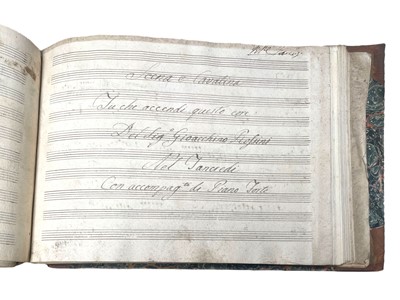 Scena e Cavatina
Tu che accendi questo cor
Del Sig.r Gioacchino Rossini
Nel Tancredi
Con accompag.to de Piano Forte